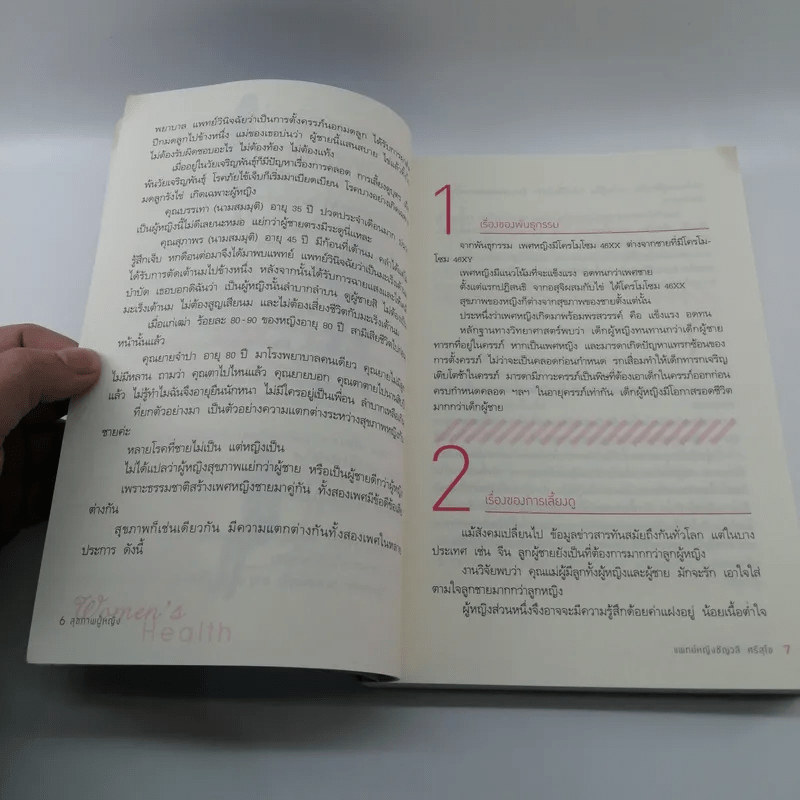 พยาบาล แพทย์วินิจฉัยว่าเป็นการตั้งครรภ์นอกมดลูก ได้รับการผ่าตัด
ปีกมดลูกไปข้างหนึ่ง แม่ของเธอบ่นว่า ผู้ชายนี้แสนสบาย ไข่แล้วทิ้ง
ไม่ต้องรับผิดชอบอะไร ไม่ต้องท้อง ไม่ต้องแท้ง
เมื่ออยู่ในวัยเจริญพันธุ์ก็มีปัญหาเรื่องการคลอด การเลี้ยงดูบุตร
พ้นวัยเจริญพันธุ์ โรคภัยไข้เจ็บก็เริ่มมาเบียดเบียน โรคบางอย่างเกิด
มดลูกรังไข่ เกิดเฉพาะผู้หญิง
คุณบรรเทา (นามสมมุติ) อายุ 35 ปี ปวดประจำเดือนมาก
เป็นผู้หญิงนี้ไม่ดีเลยนะหมอ แย่กว่าผู้ชายตรงมีระดูนี่แหละ
คุณสุภาพร (นามสมมุติ) อายุ 45 ปี มีก้อนที่เต้านม คลำได้
รู้สึกเจ็บ หกเดือนต่อมาจึงได้มาพบแพทย์ แพทย์วินิจฉัยว่าเป็นมะเร็งเต้านม
ได้รับการตัดเต้านมไปข้างหนึ่ง หลังจากนั้นได้รับการฉายแสงและ
บำบัด เธอบอกดิฉันว่า เป็นผู้หญิงนั้นลำบากลำบน ดูผู้ชายสิ ไม่ต้อง
มะเร็งเต้านม ไม่ต้องสูญเสียนม และไม่ต้องเสี่ยงชีวิตกับมะเร็งเต้านม
เมื่อแก่เฒ่า ร้อยละ 80-90 ของหญิงอายุ 80 ปี สามีเสียชีวิตไป
หน้านั้นแล้ว
คุณยายจำปา อายุ 80 ปี มาโรงพยาบาลคนเดียว คุณยายไม่มี
ไม่มีหลาน ถามว่า คุณตาไปไหนแล้ว คุณยายบอก คุณตาตายไปนาน
แล้ว ไม่รู้ทำไมฉันจึงอายุยืนนักหนา ไม่มีใครอยู่เป็นเพื่อน ลำบาก
ที่ยกตัวอย่างมา เป็นตัวอย่างความแตกต่างระหว่างสุขภาพหญิง
ชายค่ะ
หลายโรคที่ชายไม่เป็น แต่หญิงเป็น
ไม่ได้แปลว่าผู้หญิงสุขภาพแย่กว่าผู้ชาย หรือเป็นผู้ชายดีกว่าผู้หญิง
เพราะธรรมชาติสร้างเพศหญิงชายมาคู่กัน ทั้งสองเพศมีข้อดีข้อเสีย
ต่างกัน
สุขภาพก็เช่นเดียวกัน มีความแตกต่างกันทั้งสองเพศในหลาย
ประการ ดังนี้
Women's
Health
6 สุขภาพผู้หญิง
1
เรื่องของพันธุกรรม
จากพันธุกรรม เพศหญิงมีโครโมโซม 46XX ต่างจากชายที่มีโครโม-
โซม 46XY
เพศหญิงมีแนวโน้มที่จะแข็งแรง อดทนกว่าเพศชาย
ตั้งแต่แรกปฏิสนธิ จากอสุจิผสมกับไข่ ได้โครโมโซม 46XX
สุขภาพของหญิงก็ต่างจากสุขภาพของชายตั้งแต่นั้น
ประหนึ่งว่าเพศหญิงเกิดมาพร้อมพรสวรรค์ คือ แข็งแรง อดทน
หลักฐานทางวิทยาศาสตร์พบว่า เด็กผู้หญิงทนทานกว่าเด็กผู้ชาย
ทารกที่อยู่ในครรภ์ หากเป็นเพศหญิง และมารดาเกิดปัญหาแทรกซ้อนของ
การตั้งครรภ์ ไม่ว่าจะเป็นคลอดก่อนกำหนด รกเสื่อมทำให้เด็กทารกเจริญ
เติบโตช้าในครรภ์ มารดามีภาวะครรภ์เป็นพิษที่ต้องเอาเด็กในครรภ์ออกก่อน
ครบกำหนดคลอด ฯลฯ ในอายุครรภ์เท่ากัน เด็กผู้หญิงมีโอกาสรอดชีวิต
มากกว่าเด็กผู้ชาย
2
เรื่องของการเลี้ยงดู
แม้สังคมเปลี่ยนไป ข้อมูลข่าวสารทันสมัยถึงกันทั่วโลก แต่ในบาง
ประเทศ เช่น จีน ลูกผู้ชายยังเป็นที่ต้องการมากกว่าลูกผู้หญิง
งานวิจัยพบว่า คุณแม่ผู้มีลูกทั้งผู้หญิงและผู้ชาย มักจะรัก เอาใจใส่
ตามใจลูกชายมากกว่าลูกหญิง
ผู้หญิงส่วนหนึ่งจึงอาจจะมีความรู้สึกด้อยค่าแฝงอยู่ น้อยเนื้อต่ำใจ
แพทย์หญิงชัญวลี ศรีสุโข 7